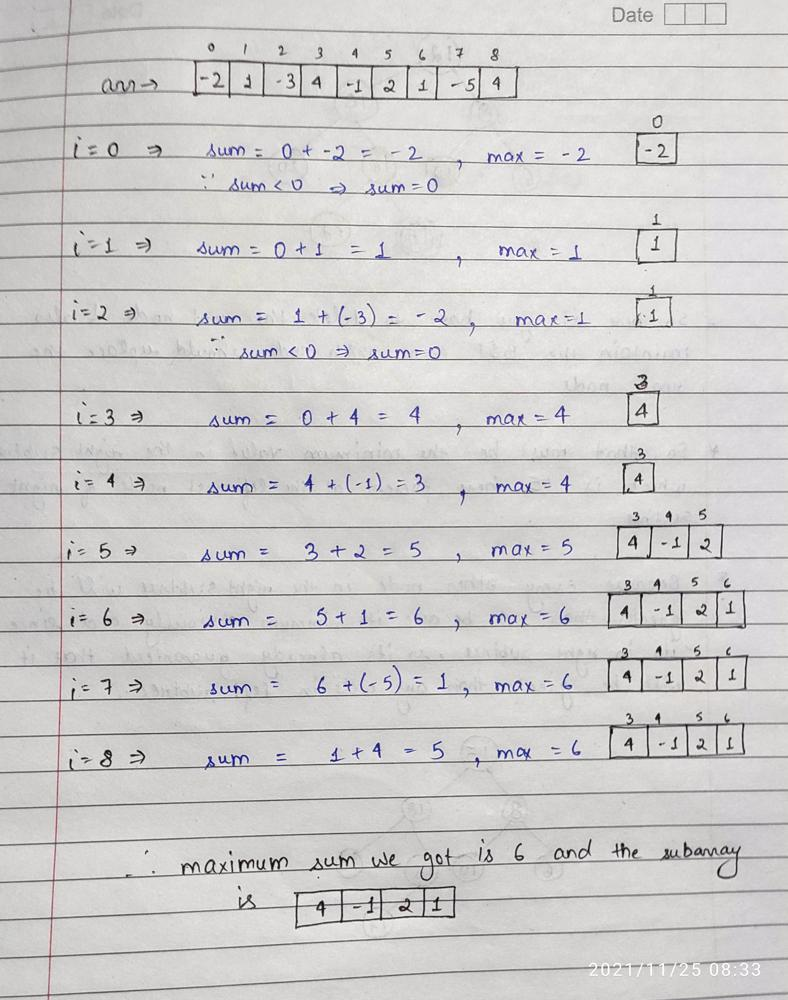 Date
0 1 2 3 4 5 6 7 8
arr → -2 1 -3 4 -1 2 1 -5 4
0
i = 0 ⇒ sum = 0 + -2 = -2 , max = -2 -2
∵ sum < 0 ⇒ sum = 0
1
i = 1 ⇒ sum = 0 + 1 = 1 , max = 1 1
1
i = 2 ⇒ sum = 1 + (-3) = -2 , max = 1 1
∵ sum < 0 ⇒ sum = 0
3
i = 3 ⇒ sum = 0 + 4 = 4 , max = 4 4
3
i = 4 ⇒ sum = 4 + (-1) = 3 , max = 4 4
3 4 5
i = 5 ⇒ sum = 3 + 2 = 5 , max = 5 4 -1 2
3 4 5 6
i = 6 ⇒ sum = 5 + 1 = 6 , max = 6 4 -1 2 1
3 4 5 6
i = 7 ⇒ sum = 6 + (-5) = 1 , max = 6 4 -1 2 1
3 4 5 6
i = 8 ⇒ sum = 1 + 4 = 5 , max = 6 4 -1 2 1
∴ maximum sum we got is 6 and the subarray
is 4 -1 2 1
2021/11/25 08:33